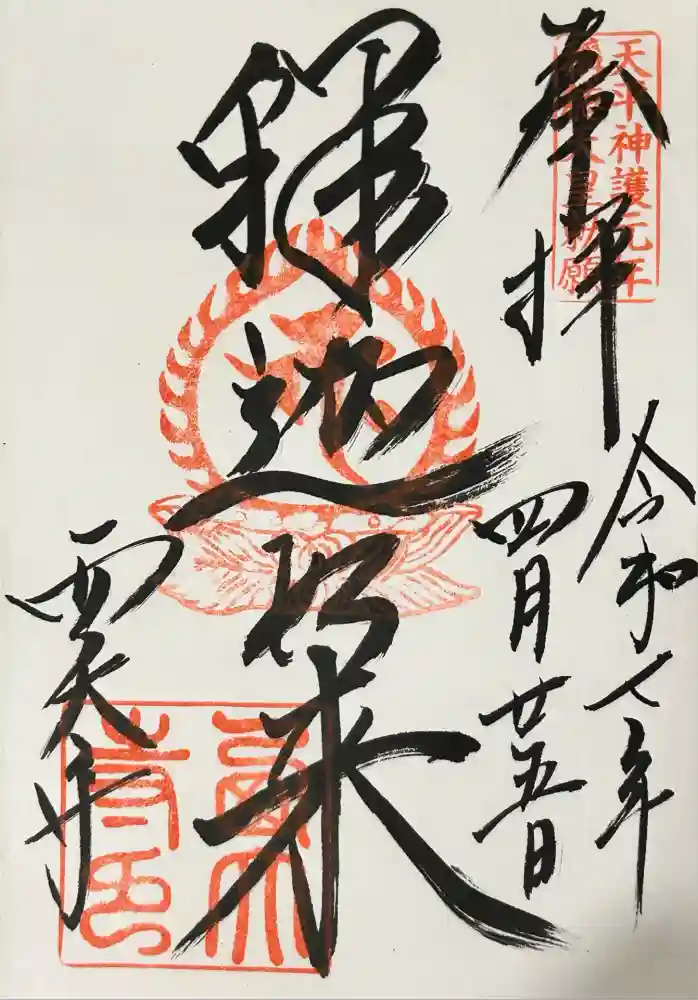 天平神護元年
稱徳天皇勅願
奉拝
令和七年
四月廿五日
釋迦如来
西大寺
西大
寺印